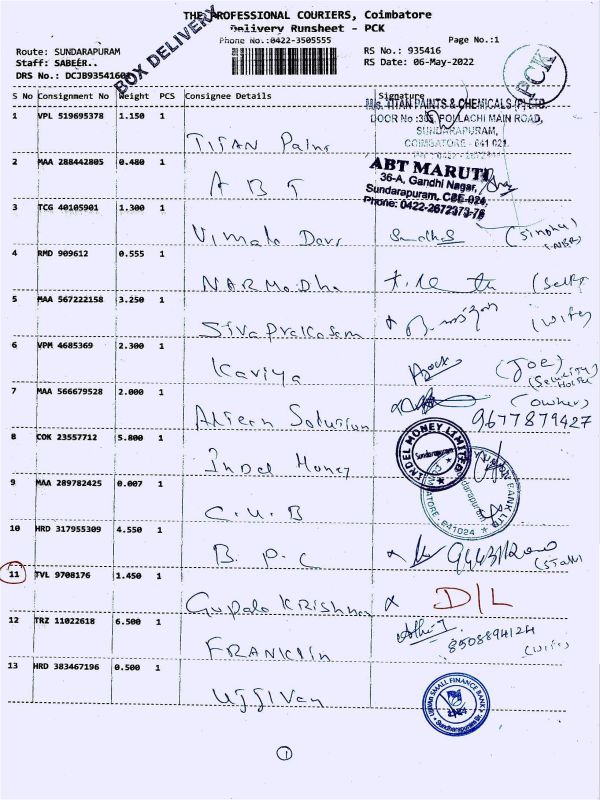 THE PROFESSIONAL COURIERS, Coimbatore
Delivery Runsheet - PCK
BOX DELIVERY
Phone No.:0422-3505555
Page No.:1
Route: SUNDARAPURAM
RS No.: 935416
Staff: SABEER..
RS Date: 06-May-2022
PCK
S No Consignment No Weight PCS Consignee Details Signature
M/s. TITAN PAINTS & CHEMICALS (P) LTD.
1 VPL 519695378 1.150 1 Titan Pains
DOOR No :305 POLLACHI MAIN ROAD,
SUNDARAPURAM,
COIMBATORE - 641 021.
2 MAA 288442805 0.480 1 A B T
ABT MARUTI
36-A, Gandhi Nagar,
Sundarapuram, CBE-024,
Phone: 0422-2672373-76
3 TCG 40105901 1.300 1 Vimala Devi
4 RMD 909612 0.555 1 NARMaDha (Self)
5 MAA 567222158 3.250 1 SivaPraKasam (wife)
6 VPM 4685369 2.300 1 Kaviya (Joe)
7 MAA 566679528 2.000 1 (owner)
9677879427
8 COK 23557712 5.800 1 Indel Money
INDEL MONEY LIMITED
Sundarapuram
9 MAA 289782425 0.007 1 C.U.B
UNION BANK LTD
COIMBATORE 641024
10 HRD 317955309 4.550 1 B.P.C
11 TVL 9708176 1.450 1 Gopala Krishnan D/L
12 TRZ 11022618 6.500 1 FRANKlin
8508894124
(wife)
13 HRD 383467196 0.500 1 UjjiVan
UJJIVAN SMALL FINANCE BANK
1